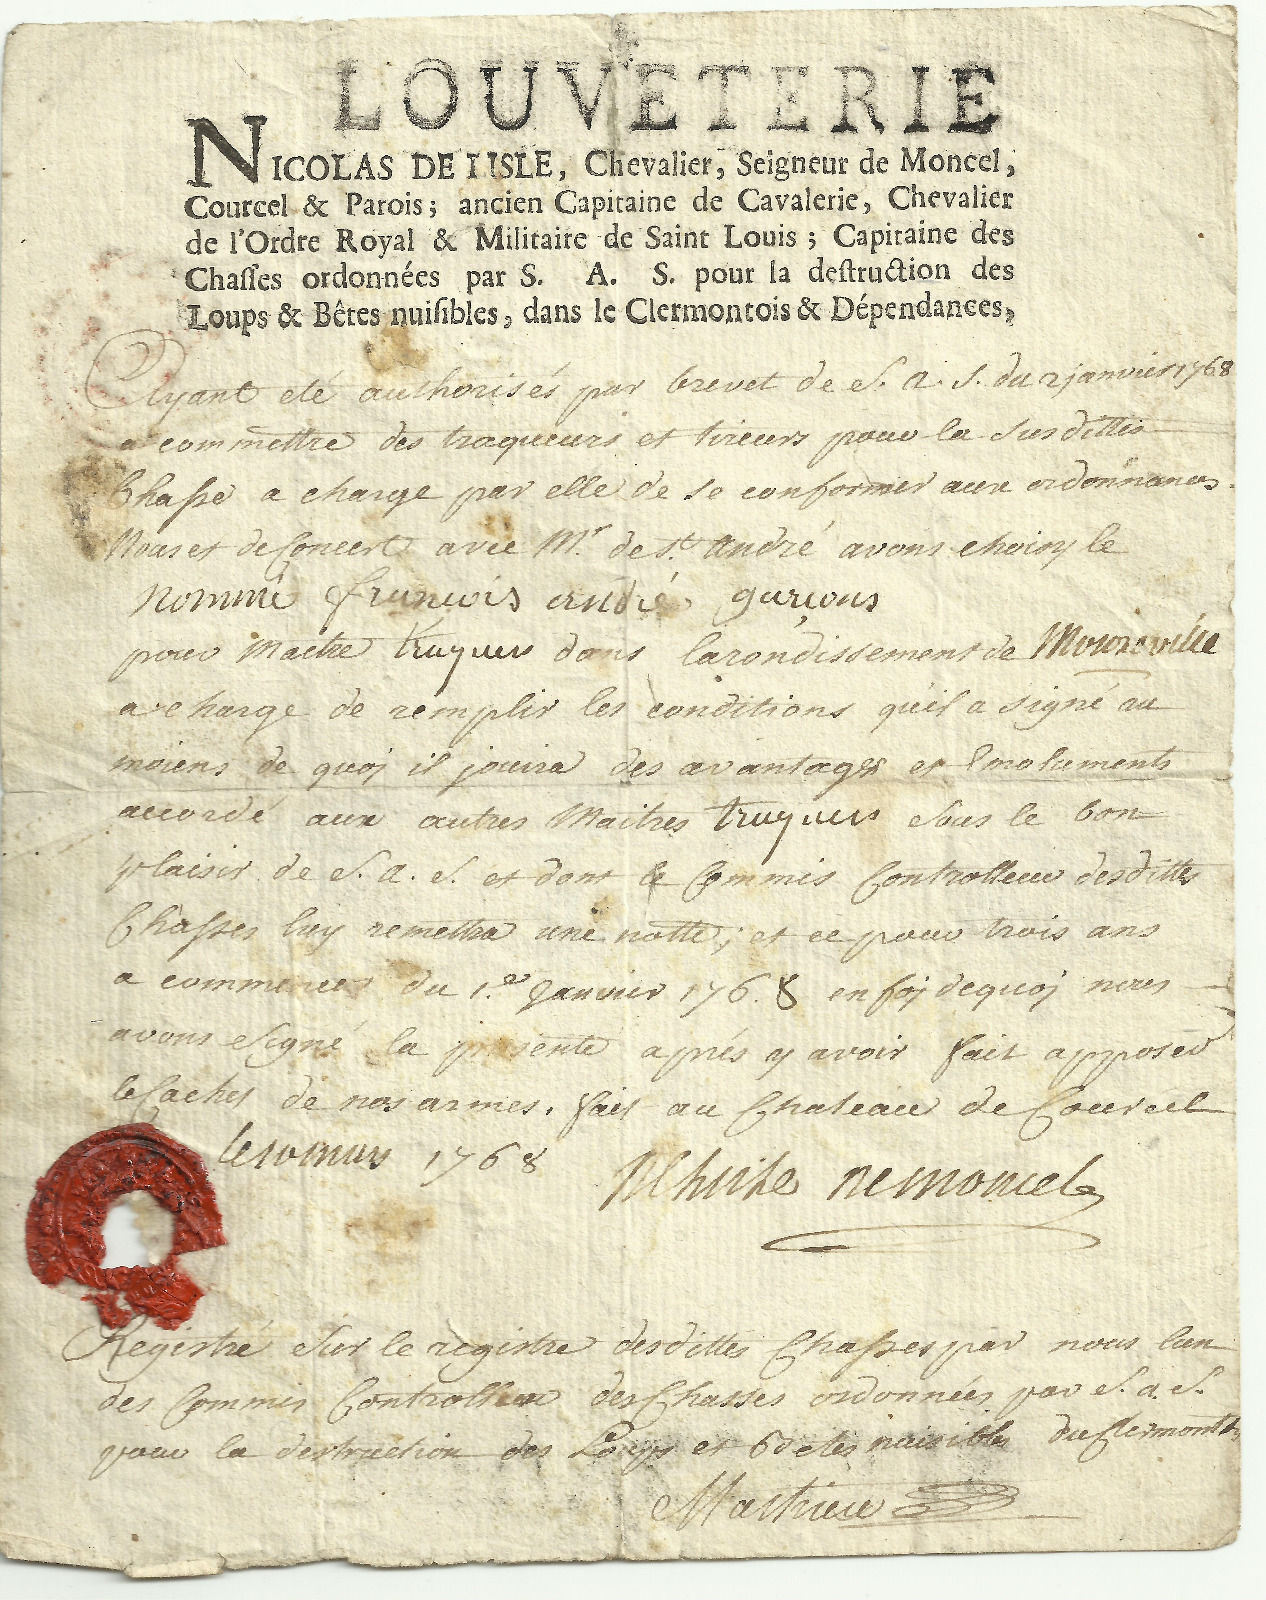 LOUVETERIE
NICOLAS DE LISLE, Chevalier, Seigneur de Moncel,
Courcel & Parois; ancien Capitaine de Cavalerie, Chevalier
de l'Ordre Royal & Militaire de Saint Louis; Capitaine des
Chasses ordonnées par S. A. S. pour la destruction des
Loups & Bêtes nuisibles, dans le Clermontois & Dépendances,
Ayant eté authorisés par brevet de S. a. S. du 2 janvier 1768
a commettre des traqueurs et tireurs pour la susditte
Chasse a charge par elle de se conformer aux ordonnances
Nous et de Concert avec Mr. de st. André avons choisy le
nommé françois andré garçons
pour Maitre traqueur dans larondissement de
a charge de remplir les conditions quil a signé au
moiens de quoj il jouira des avantages et Emoluments
accordé aux autres Maitres traqueurs sous le bon
plaisir de S. a. S. et dont le Commis Controlleur desdittes
Chasses luy remettra une notte; et ce pour trois ans
a commencer du 1.er janvier 1768 en foj dequoj nous
avons signé la présente aprés y avoir fait apposer
le Cachet de nos armes. fait au Chateau de Courcel
le 10 mars 1768
de moncel
Registré sur le registre desdittes Chasses par nous lun
des Commis Controlleur des Chasses ordonnées par S. a. S.
pour la destruction des Loups et Betes nuisibles du Clermontois
Mathieu